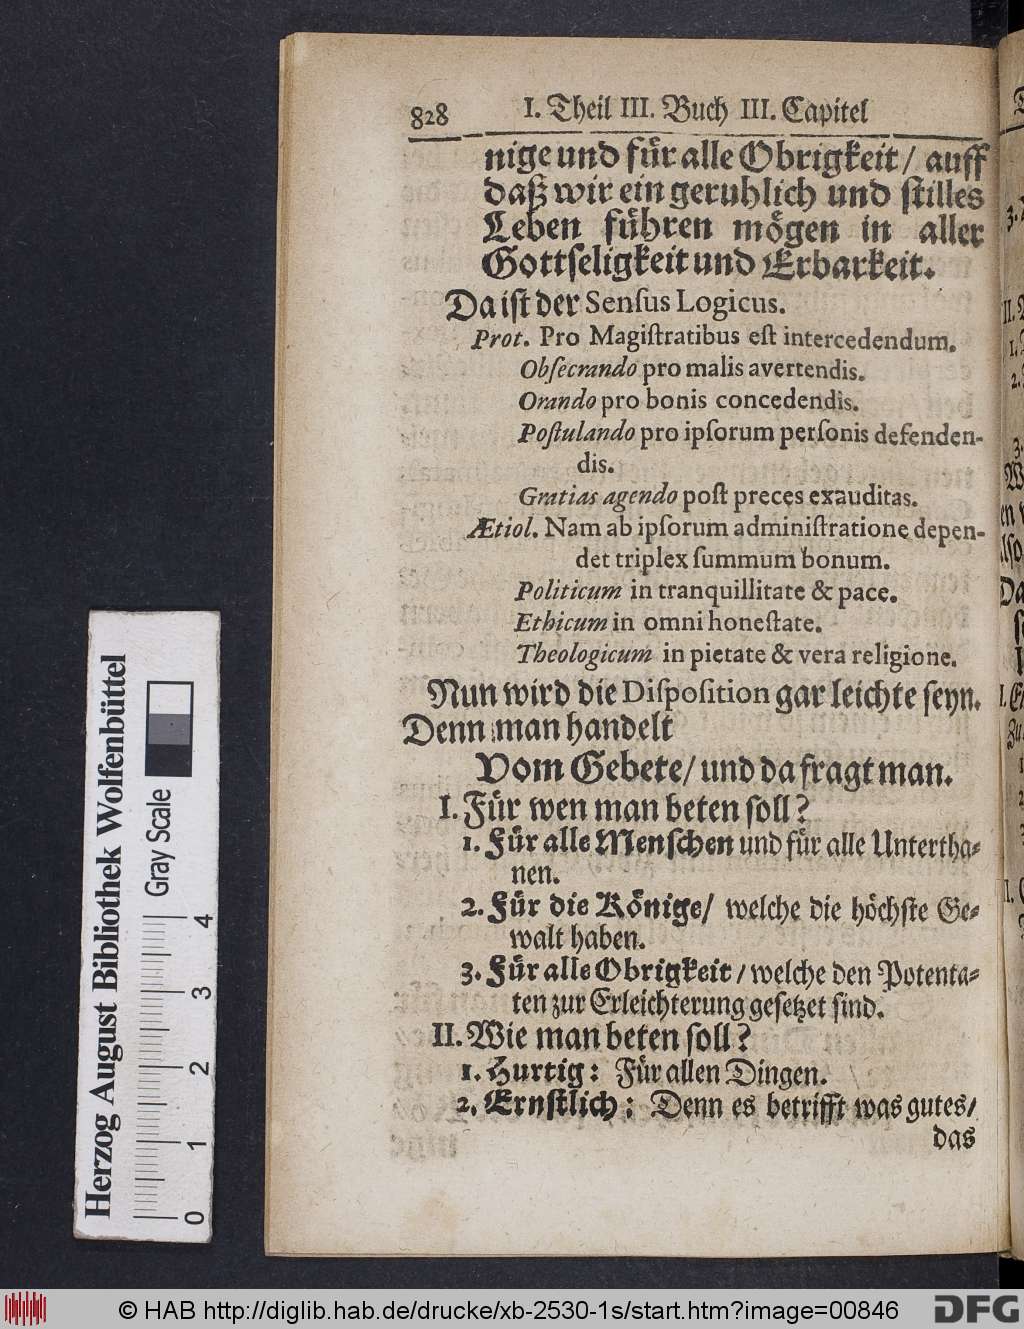 828 I. Theil III. Buch III. Capitel
nige und für alle Obrigkeit / auff
daß wir ein geruhlich und stilles
Leben führen mögen in aller
Gottseligkeit und Erbarkeit.
Da ist der Senſus Logicus.
Prot. Pro Magiſtratibus eſt intercedendum.
Obſecrando pro malis avertendis.
Orando pro bonis concedendis.
Poſtulando pro ipſorum perſonis defenden-
dis.
Gratias agendo poſt preces exauditas.
Ætiol. Nam ab ipſorum adminiſtratione depen-
det triplex ſummum bonum.
Politicum in tranquillitate & pace.
Ethicum in omni honeſtate.
Theologicum in pietate & vera religione.
Nun wird die Diſpoſition gar leichte ſeyn.
Denn man handelt
Vom Gebete / und da fragt man.
I. Für wen man beten ſoll?
1. Für alle Menſchen und für alle Untertha-
nen.
2. Für die Könige / welche die höchſte Ge-
walt haben.
3. Für alle Obrigkeit / welche den Potenta-
ten zur Erleichterung geſetzet ſind.
II. Wie man beten ſoll?
1. Hurtig: Für allen Dingen.
2. Ernſtlich: Denn es betrifft was gutes /
das
Herzog August Bibliothek Wolfenbüttel
Gray Scale
0 1 2 3 4
© HAB http://diglib.hab.de/drucke/xb-2530-1s/start.htm?image=00846
DFG